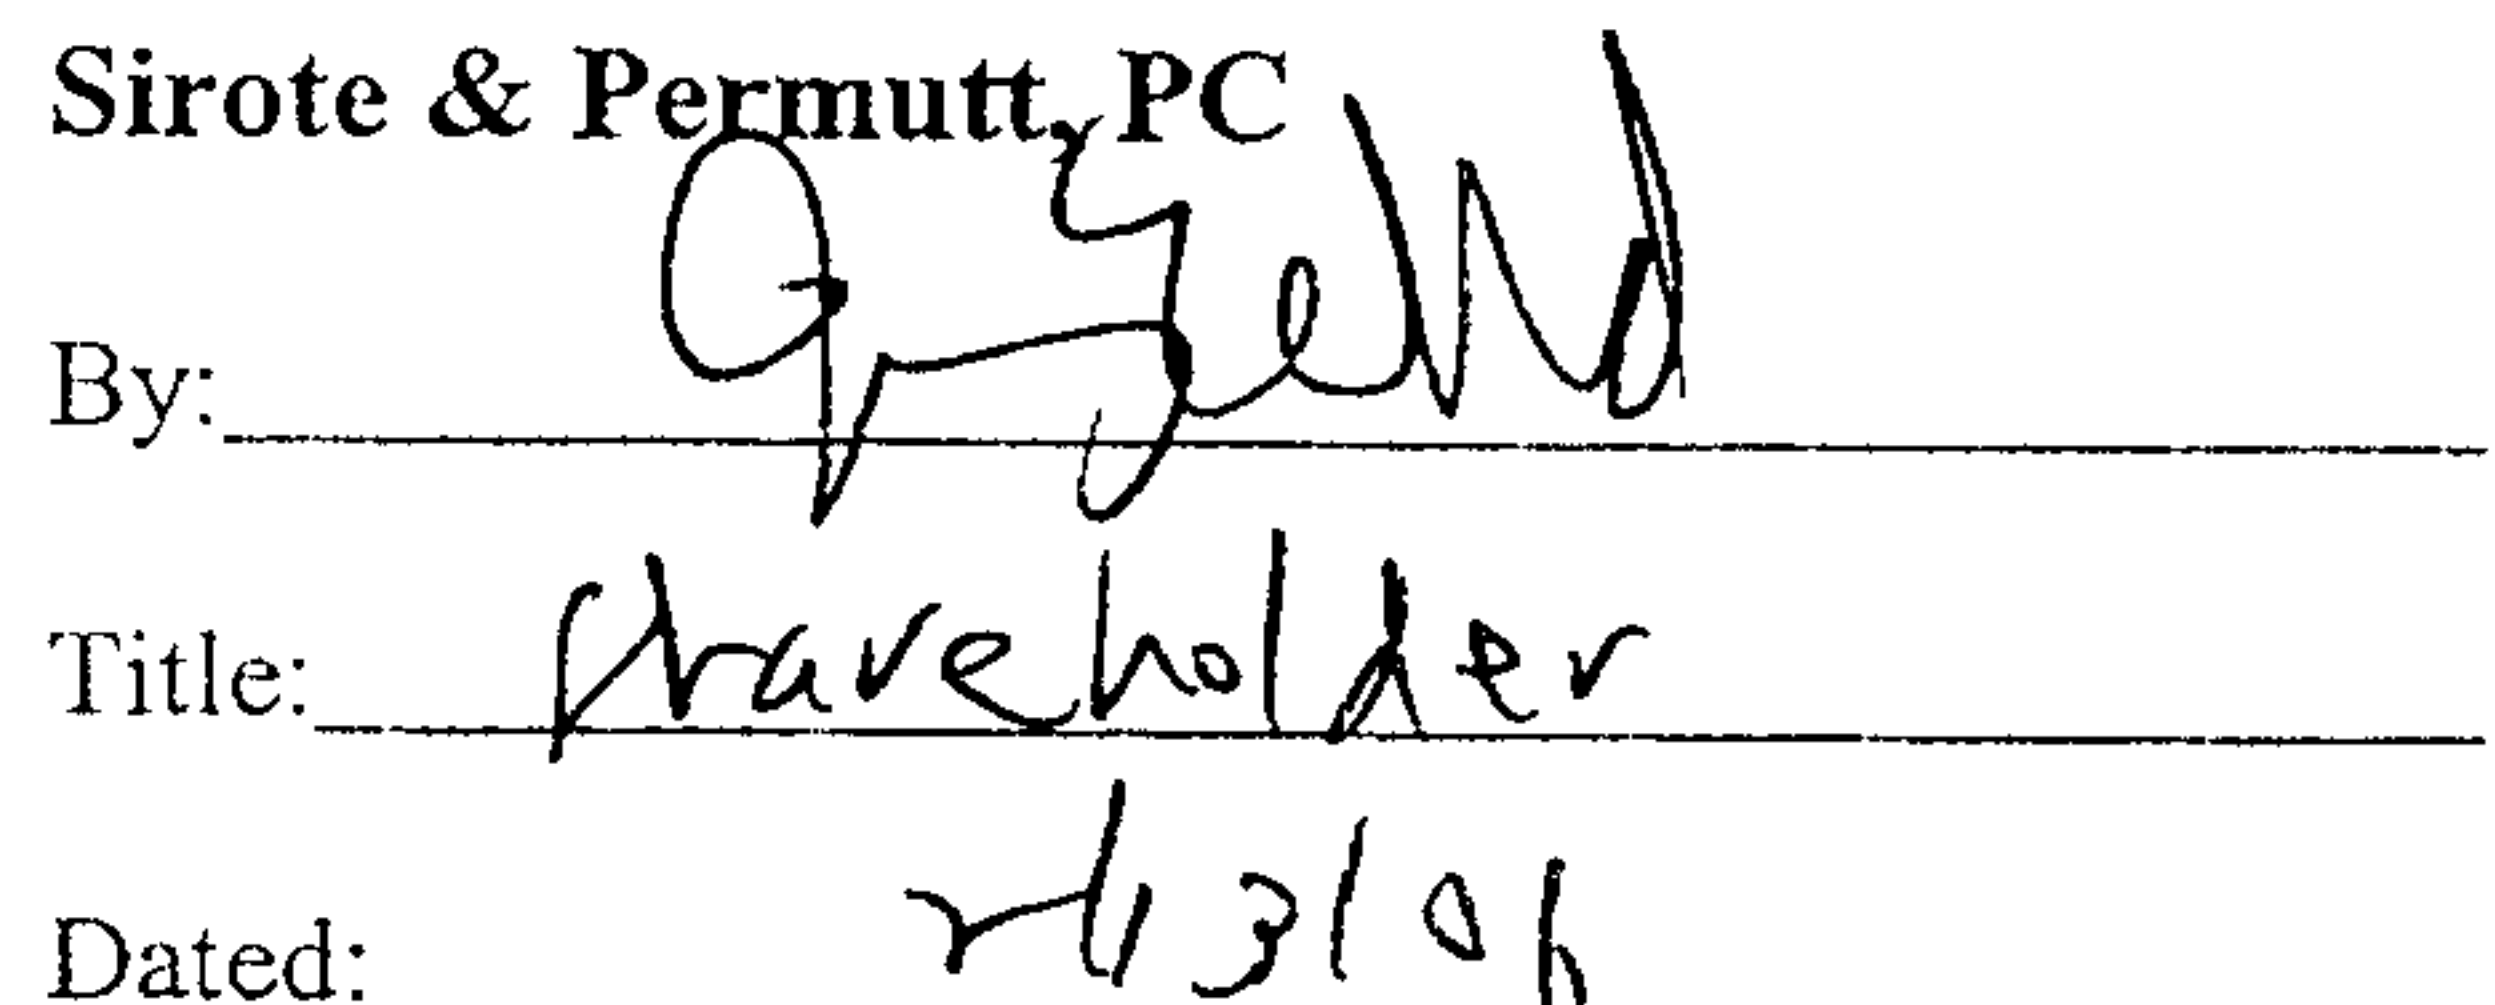 Sirote & Permutt, PC
By:
Title: Shareholder
Dated: